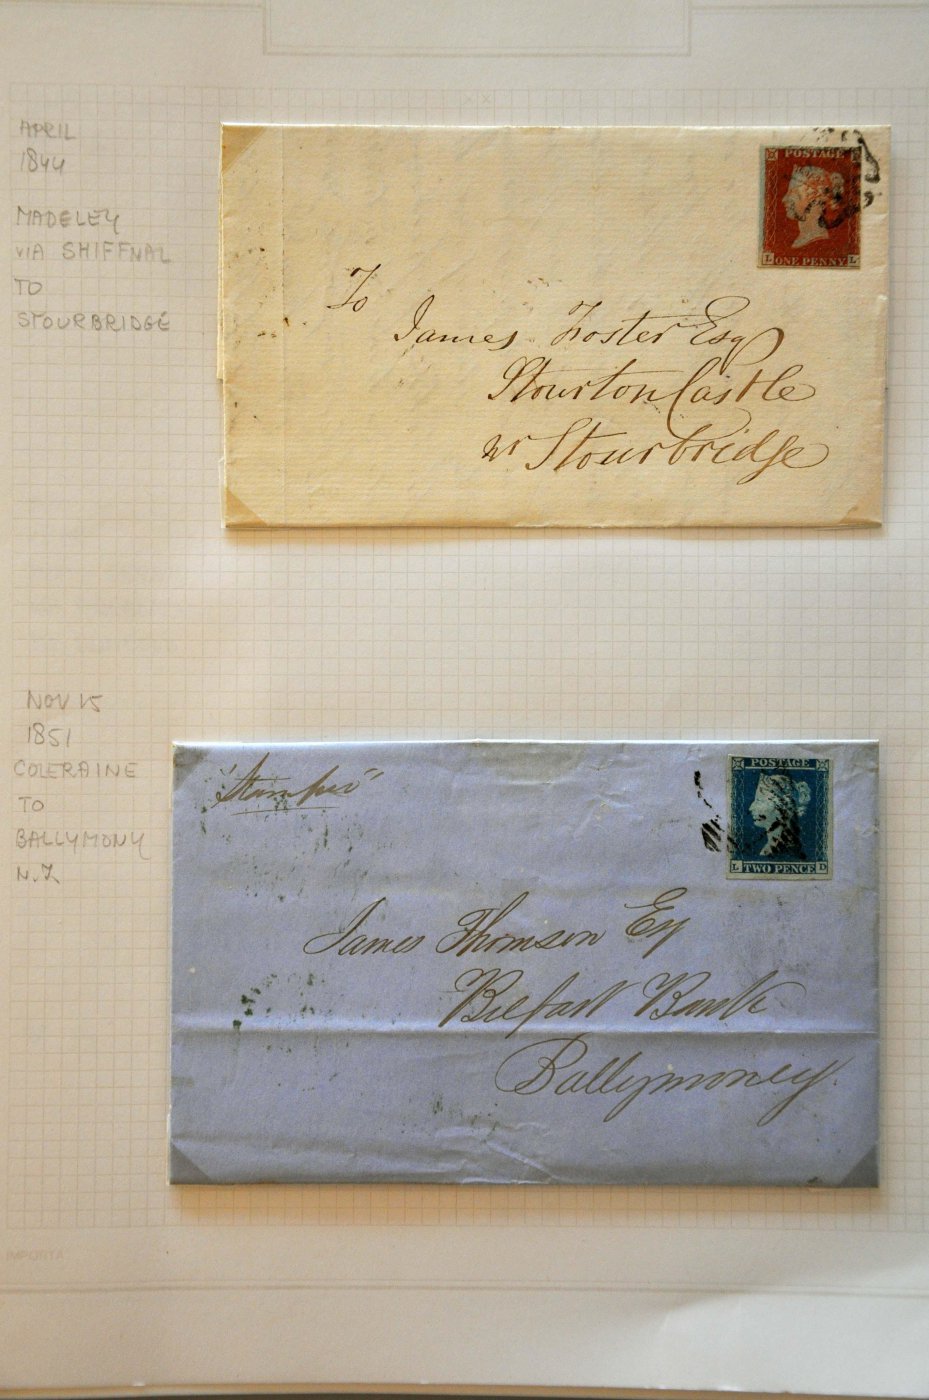 APRIL
1844
MADELEY
VIA SHIFFNAL
TO
STOURBRIDGE
POSTAGE
L ONE PENNY L
To
James Foster Esq
Stourton Castle
nr Stourbridge
NOV 15
1851
COLERAINE
TO
BALLYMONY
N.I
POSTAGE
L TWO PENCE D
James Thomson Esq
Belfast Bank
Ballymoney.
IMPORTA